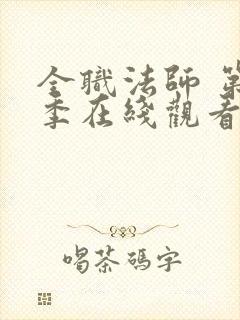 全職法師
季在綫觀看
喝茶碼字